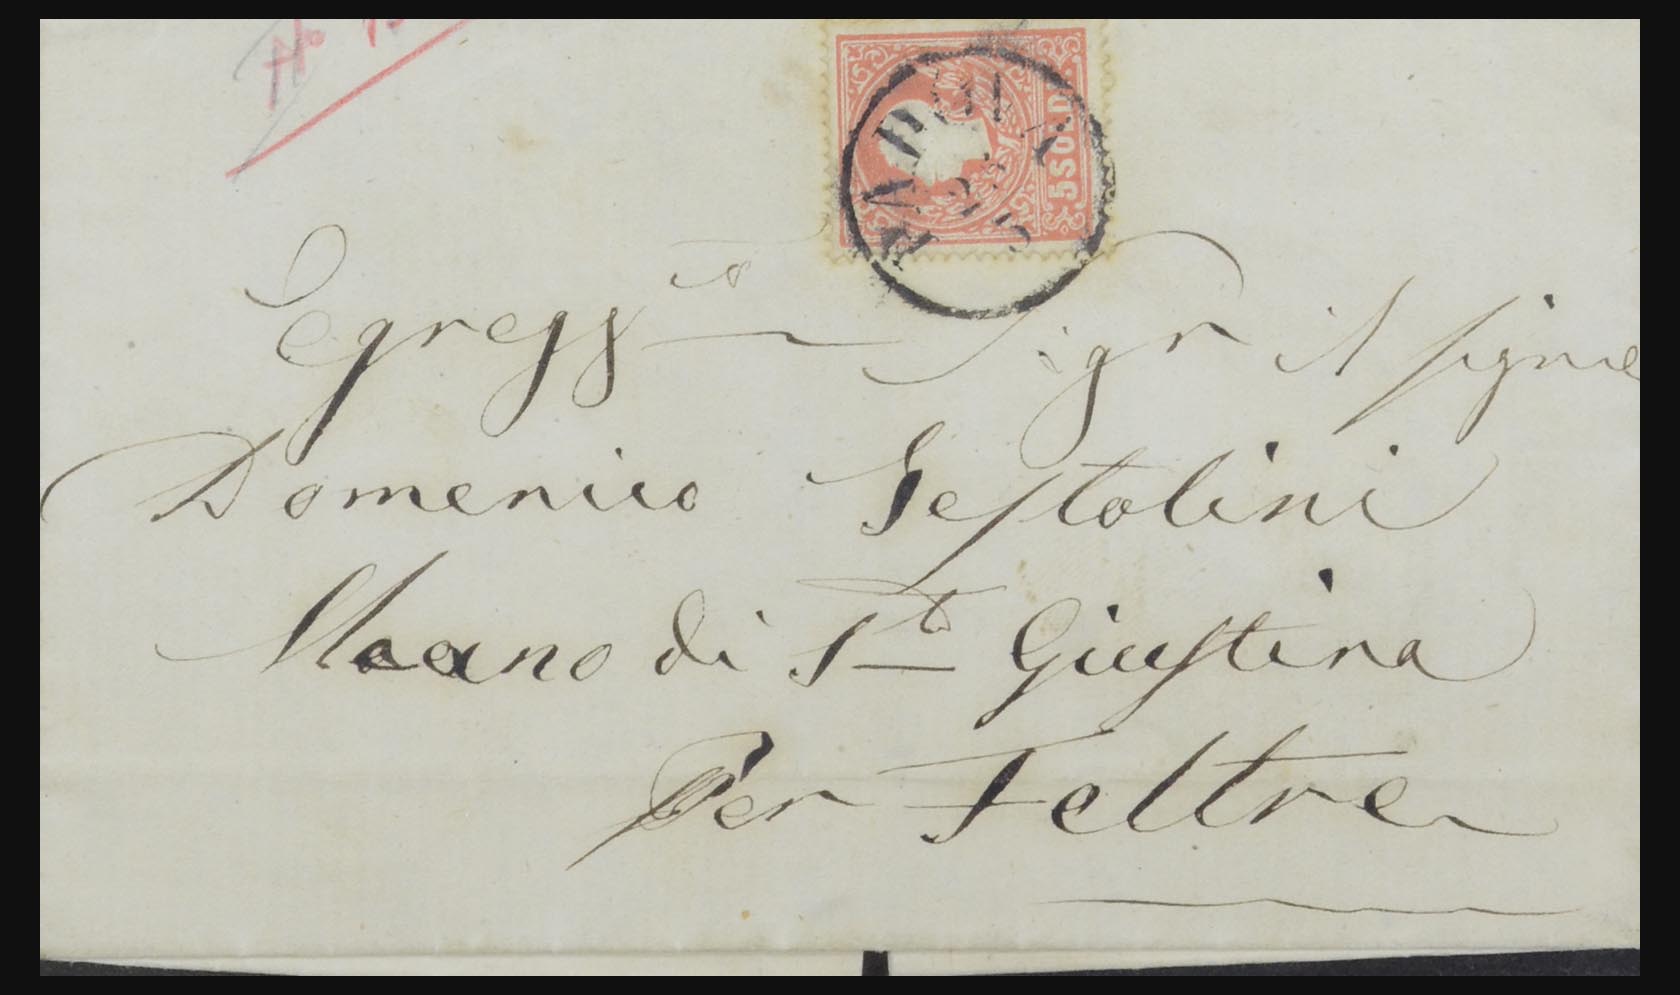 No
5 SOLDI
PADOVA
Egregg.mo Sigr il Signe
Domenico Sestolini
Meano di Sta Giustina
Per Feltre